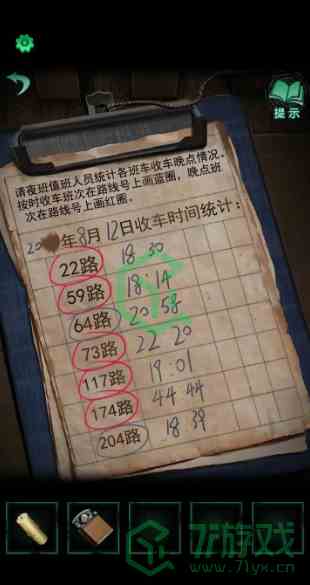 提示
请夜班值班人员统计各班车收车晚点情况。
按时收车班次在路线号上画蓝圈，晚点班
次在路线号上画红圈。
20 年8月12日收车时间统计：
22路 18 30
59路 18:14
64路 20:58
73路 22 20
117路 19:01
174路 44 44
204路 18 39
7i游戏
www.71yx.cn